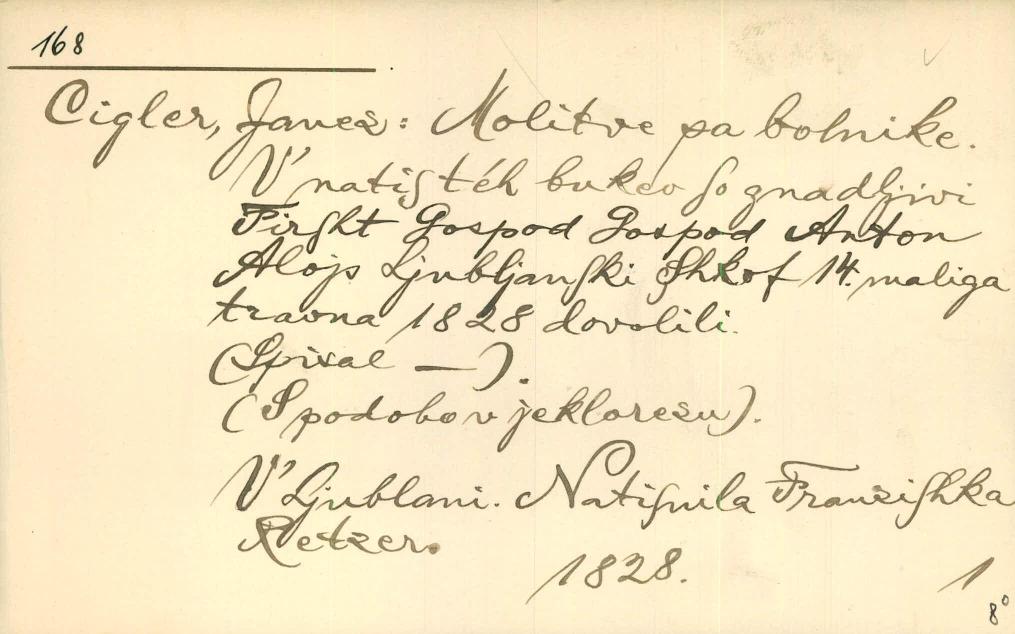 168
Cigler, Janez: Molitve sa bolnike.
V' natiſ téh bukev ſo gnadljivi
Firſht Goſpod Goſpod Anton
Alojs Ljubljanſki Shkof 14. maliga
travna 1828 dovolili.
(Spisal —).
(S podobo v jeklorezu).
V' Ljublani. Natiſnila Franziſhka
Retzer.
1828.
1
8°